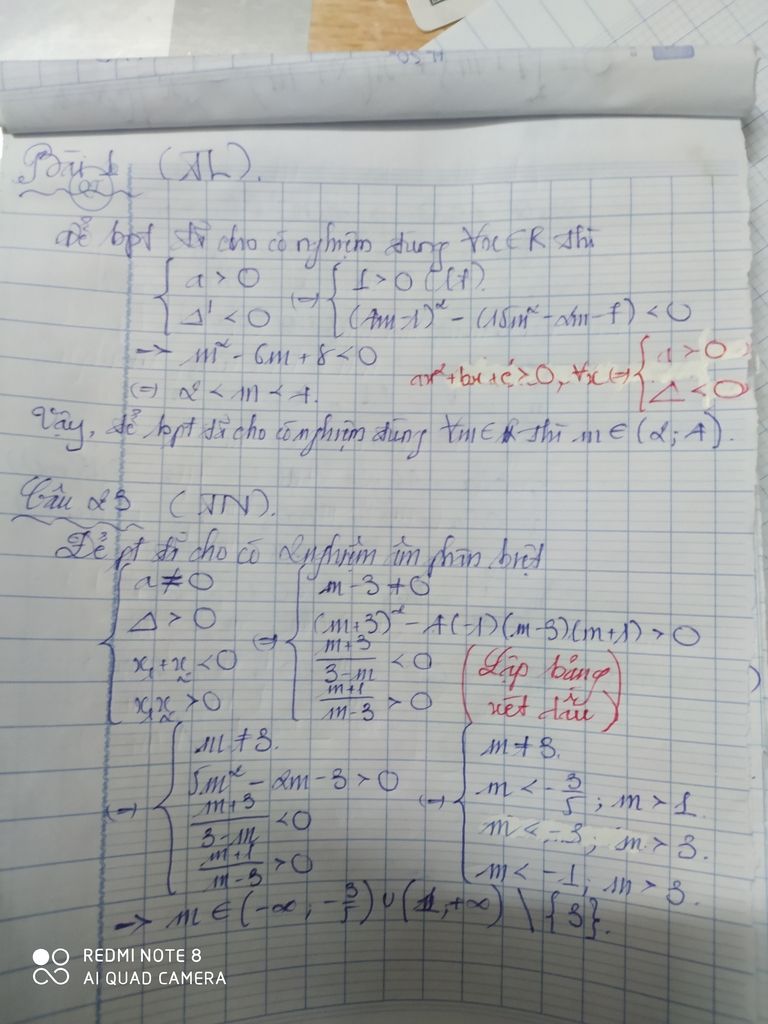 Bài 1 (TL).
Q1
Để bpt đã cho có nghiệm đúng ∀x∈R thì
{ a > 0 (=) { 1 > 0 (lđ).
{ Δ' < 0 { (4m-1)² - (15m² - 2m - 7) < 0
→ m² - 6m + 8 < 0
ax² + bx + c > 0, ∀x (=) { a > 0
{ Δ < 0
(=) 2 < m < 4.
Vậy, để bpt đã cho có nghiệm đúng ∀m∈R thì m ∈ (2; 4).
Câu 23 (TN).
Để pt đã cho có 2 nghiệm âm phân biệt
{ a ≠ 0 (=) { m - 3 ≠ 0
{ Δ > 0 { (m+3)² - 4(-1)(m-3)(m+1) > 0
{ x₁ + x₂ < 0 { (m+3)/(3-m) < 0
{ x₁x₂ > 0 { (m+1)/(m-3) > 0
(Lập bảng
xét dấu)
(=) { m ≠ 3. (=) { m ≠ 3.
{ 5m² - 2m - 3 > 0 { m < -3/5 ; m > 1.
{ (m+3)/(3-m) < 0 { m < -3; m > 3.
{ (m+1)/(m-3) > 0 { m < -1; m > 3.
→ m ∈ (-∞; -3/5) ∪ (1; +∞) \ {3}.
REDMI NOTE 8
AI QUAD CAMERA